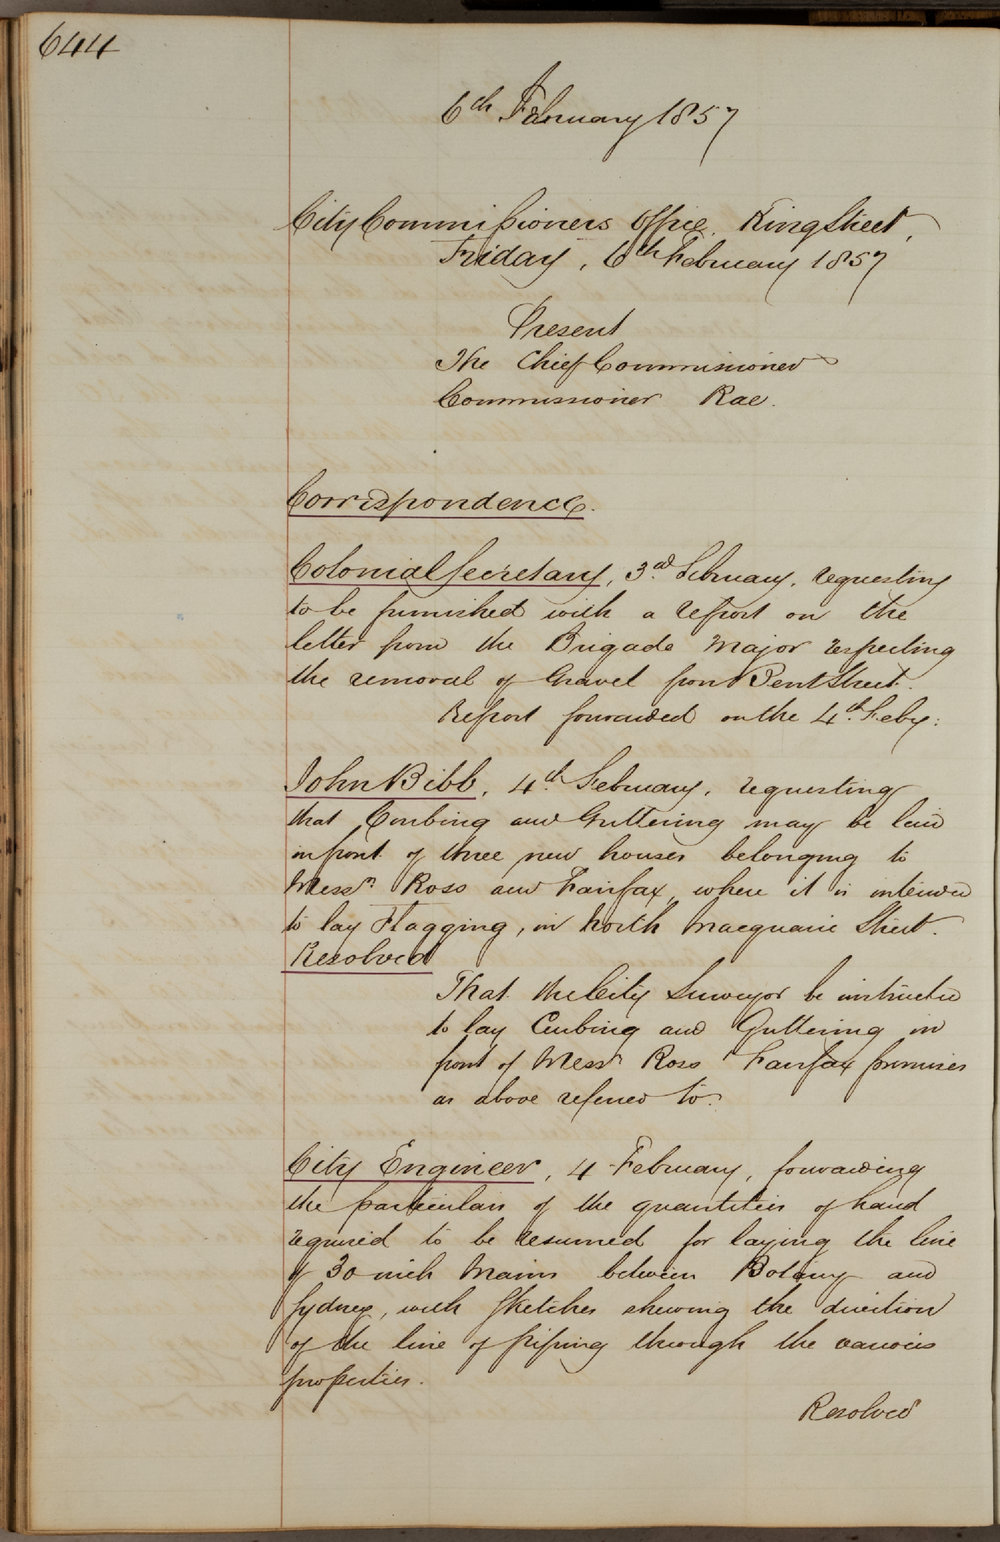 644
6th February 1857
City Commissioners Office. King Street,
Friday, 6th February 1857
Present
The Chief Commissioner
Commissioner Rae.
Correspondence.
Colonial Secretary, 3rd February, requesting
to be furnished with a report on the
letter from the Brigade Major respecting
the removal of Gravel from Bent Street.
Report forwarded on the 4th Feby:
John Bibb, 4th February, requesting
that Curbing and Guttering may be laid
in front of three new houses belonging to
Messrs Ross and Fairfax, where it is intended
to lay Flagging, in North Macquarie Street.
Resolved
That the City Surveyor be instructed
to lay Curbing and Guttering in
front of Messrs Ross Fairfax premises
as above referred to.
City Engineer, 4 February, forwarding
the particulars of the quantities of land
required to be resumed for laying the line
of 30 inch Mains between Botany and
Sydney, with Sketches shewing the direction
of the line of piping through the various
properties.
Resolved